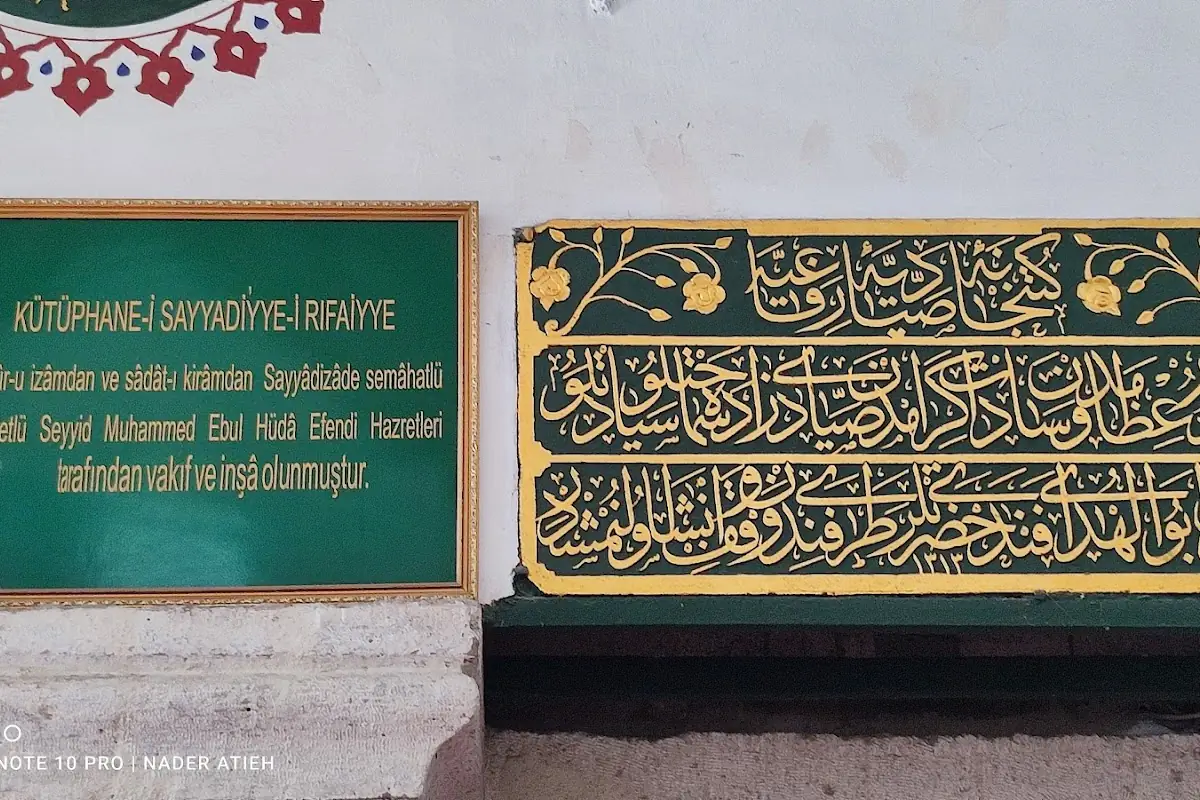 KÜTÜPHANE-İ SAYYADİYYE-İ RIFAİYYE
îr-u izâmdan ve sâdât-ı kirâmdan Sayyâdizâde semâhatlü
etlü Seyyid Muhammed Ebul Hüdâ Efendi Hazretleri
tarafından vakıf ve inşâ olunmuştur.
كتبخانه صیادیه رفاعیه
عظامدن و سادات کرامدن صیادی زاده سماحتلو سیادتلو
ابو الهدی افندی حضرتلری طرفندن وقف و انشا اولنمشدر
١٣١٣
NOTE 10 PRO | NADER ATIEH